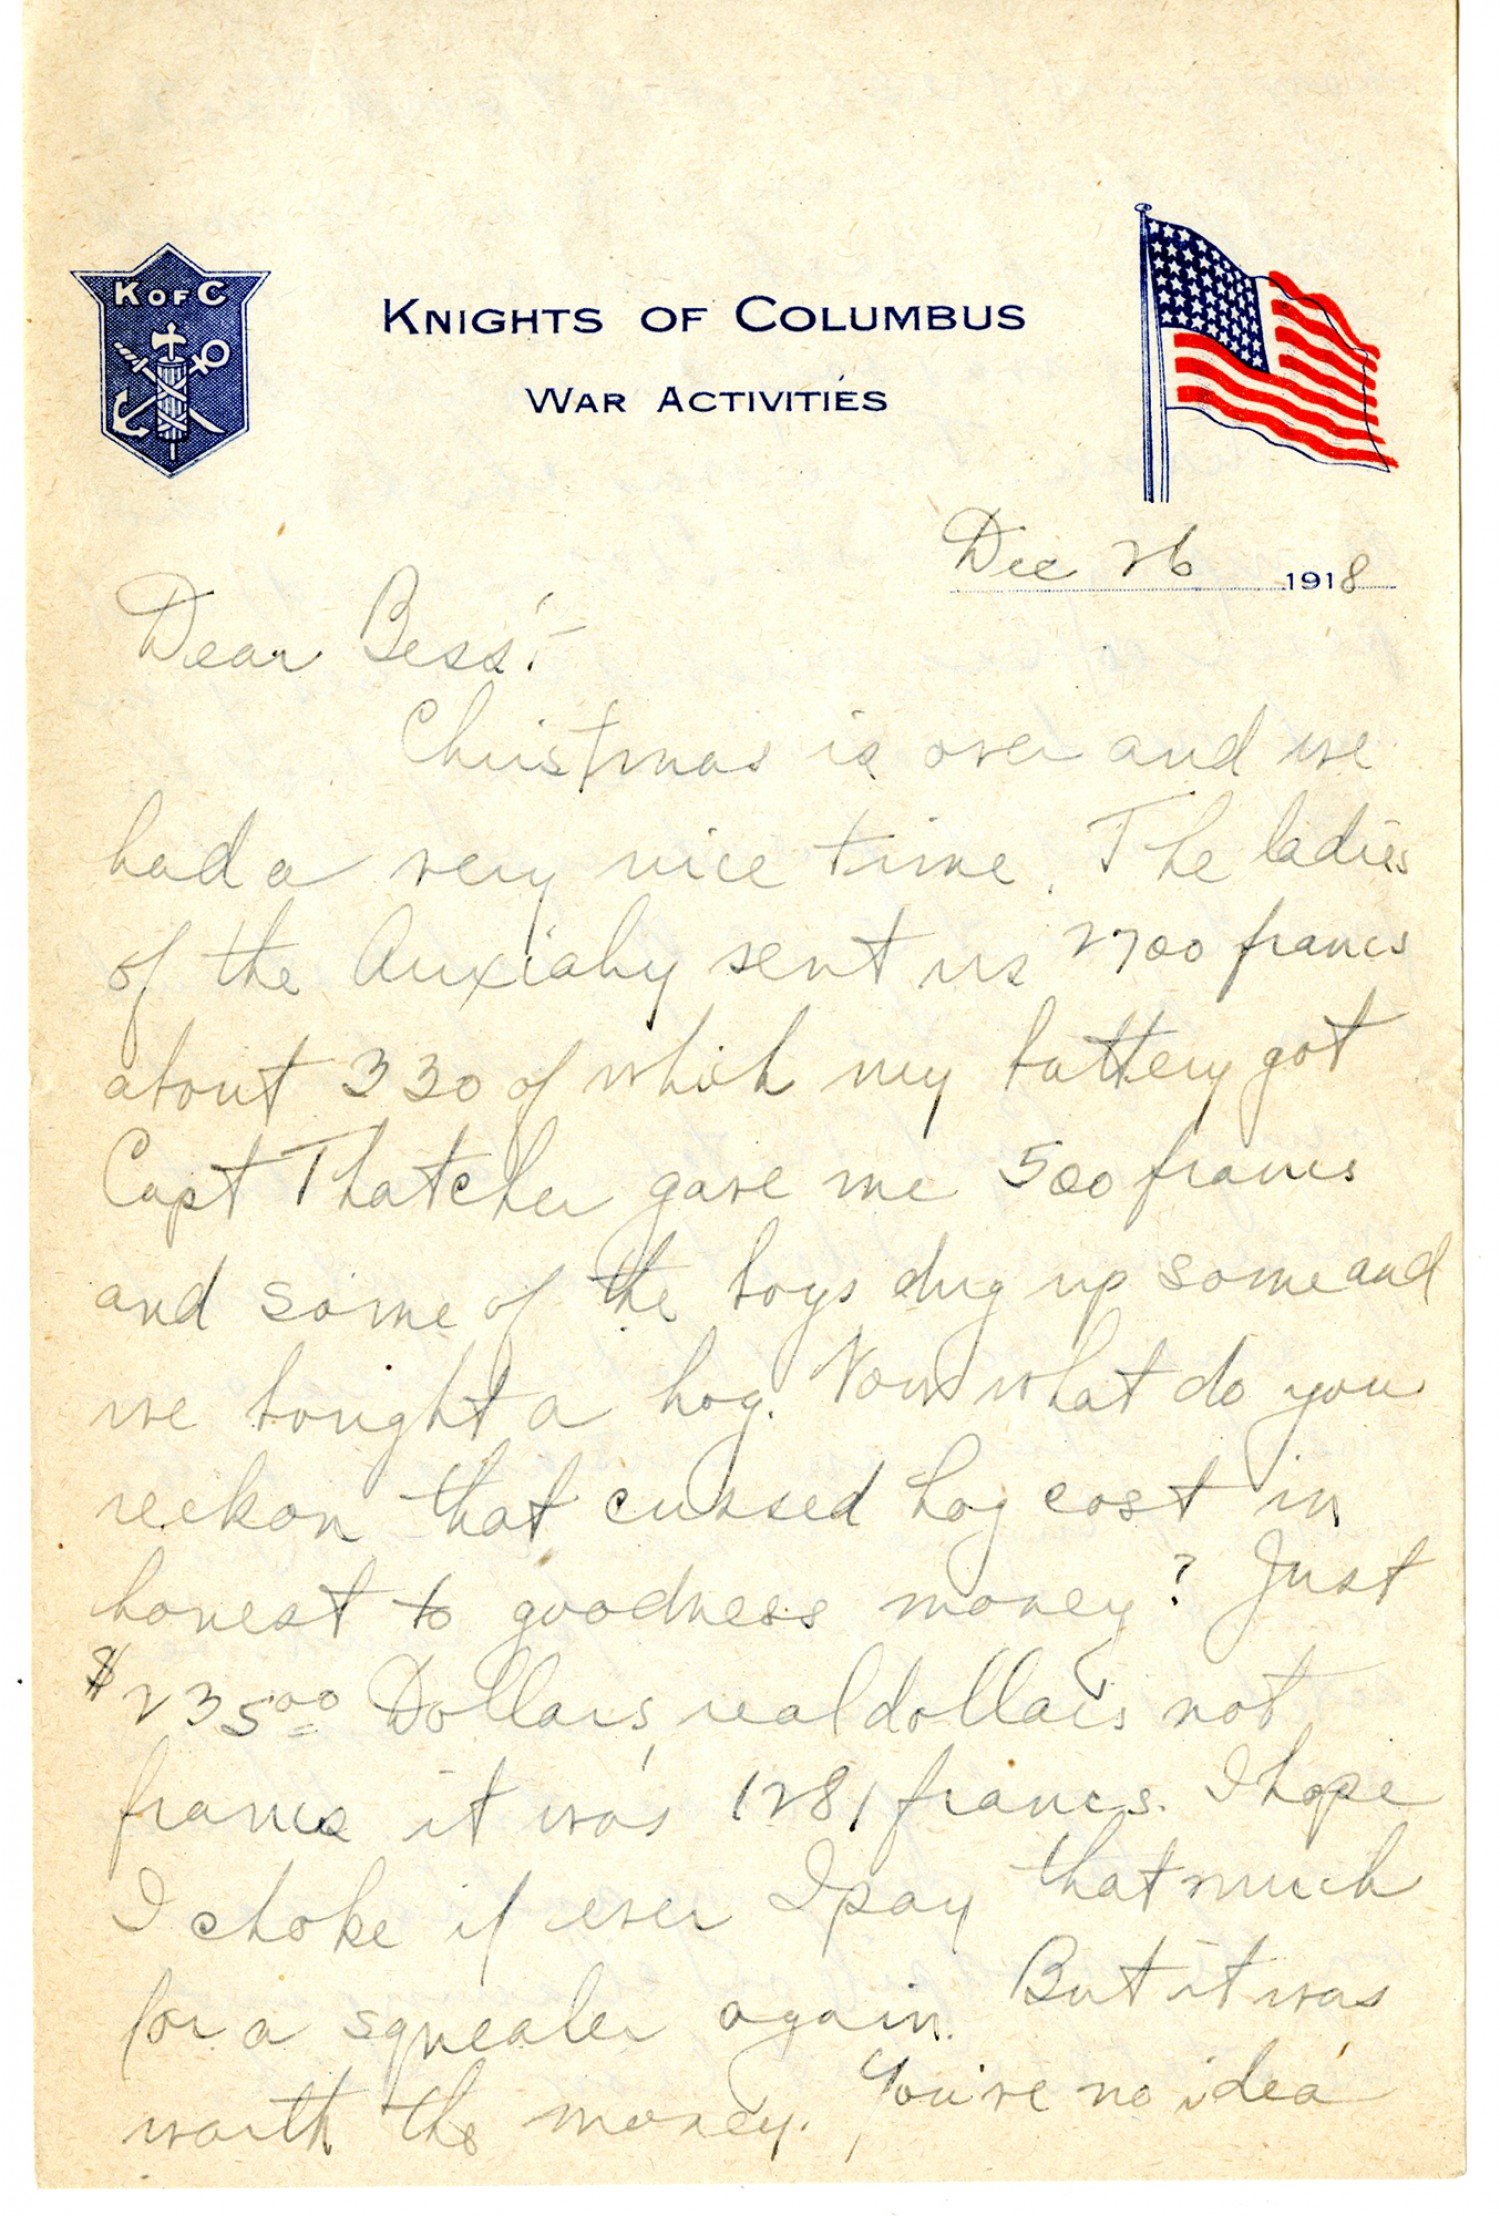 K OF C
KNIGHTS OF COLUMBUS
WAR ACTIVITIES
Dec 26 1918
Dear Bess:-
Christmas is over and we
had a very nice time. The ladies
of the Auxialry sent us 2700 francs
about 330 of which my battery got
Capt Thatcher gave me 500 francs
and some of the boys dug up some and
we bought a hog. Now what do you
reckon that cussed hog cost in
honest to goodness money? Just
$235.00 Dollars, real dollars not
francs it was 1281 francs. I hope
I choke if ever I pay that much
for a squealer again. But it was
worth the money. You've no idea